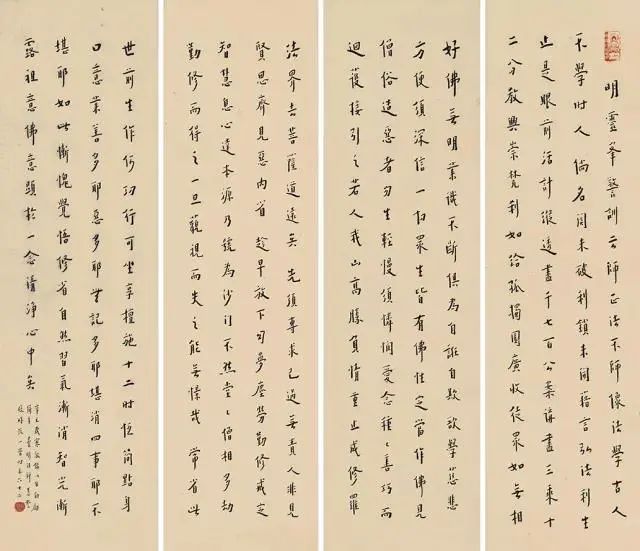 明靈峯警訓云師正法不師像法學古人
不學時人倘名關未破利鎖未開藉言弘法利生
止是眼前活計縱透盡千七百公案講盡三乘十
二分教興崇梵刹如給孤獨園廣收徒眾如無相
好佛無明業識不斷俱為自誑自欺欲學慈悲
方便須深信一切眾生皆有佛性定當作佛見
僧俗造惡者勿生輕慢須憐憫愛念種〻善巧而
迴護接引之若人我山高勝負情重止成修羅
法界去菩薩道遠矣先須專求己過毋責人非見
賢思齊見惡內省趁早放下幻夢塵勞勤修戒定
智慧息心達本源乃號為沙門不然堂〻僧相多劫
勤修而得之一旦藐視而失之能無哉常省此
世前生作何功行可坐享檀施十二時恆簡點身
口意業善多耶惡多耶無記多耶堪消四事耶不
堪耶如此慚愧覺悟修省自然習氣漸消智光漸
露祖意佛意顯於一念清淨心中矣